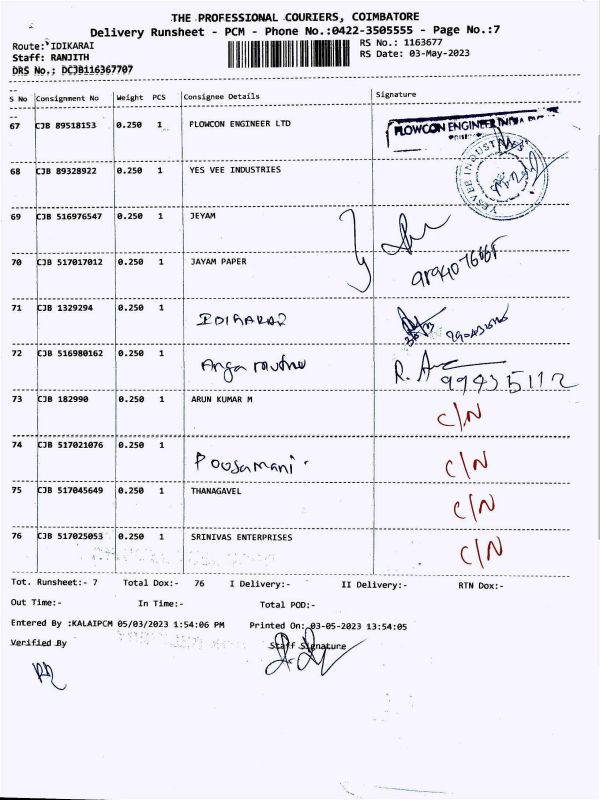 THE PROFESSIONAL COURIERS, COIMBATORE
Delivery Runsheet - PCM - Phone No.:0422-3505555 - Page No.:7
Route: IDIKARAI
RS No.: 1163677
Staff: RANJITH
RS Date: 03-May-2023
DRS No.; DCJB116367707
S No Consignment No Weight PCS Consignee Details Signature
67 CJB 89518153 0.250 1 FLOWCON ENGINEER LTD FLOWCON ENGINEER INDIA
68 CJB 89328922 0.250 1 YES VEE INDUSTRIES YESVEE INDUST
69 CJB 516976547 0.250 1 JEYAM
70 CJB 517017012 0.250 1 JAYAM PAPER
71 CJB 1329294 0.250 1
72 CJB 516980162 0.250 1 R.
73 CJB 182990 0.250 1 ARUN KUMAR M C/N
74 CJB 517021076 0.250 1 Poosamani. C/N
75 CJB 517045649 0.250 1 THANAGAVEL C/N
76 CJB 517025053 0.250 1 SRINIVAS ENTERPRISES C/N
Tot. Runsheet:- 7 Total Dox:- 76 I Delivery:- II Delivery:- RTN Dox:-
Out Time:- In Time:- Total POD:-
Entered By :KALAIPCM 05/03/2023 1:54:06 PM Printed On: 03-05-2023 13:54:05
Verified By Staff Signature